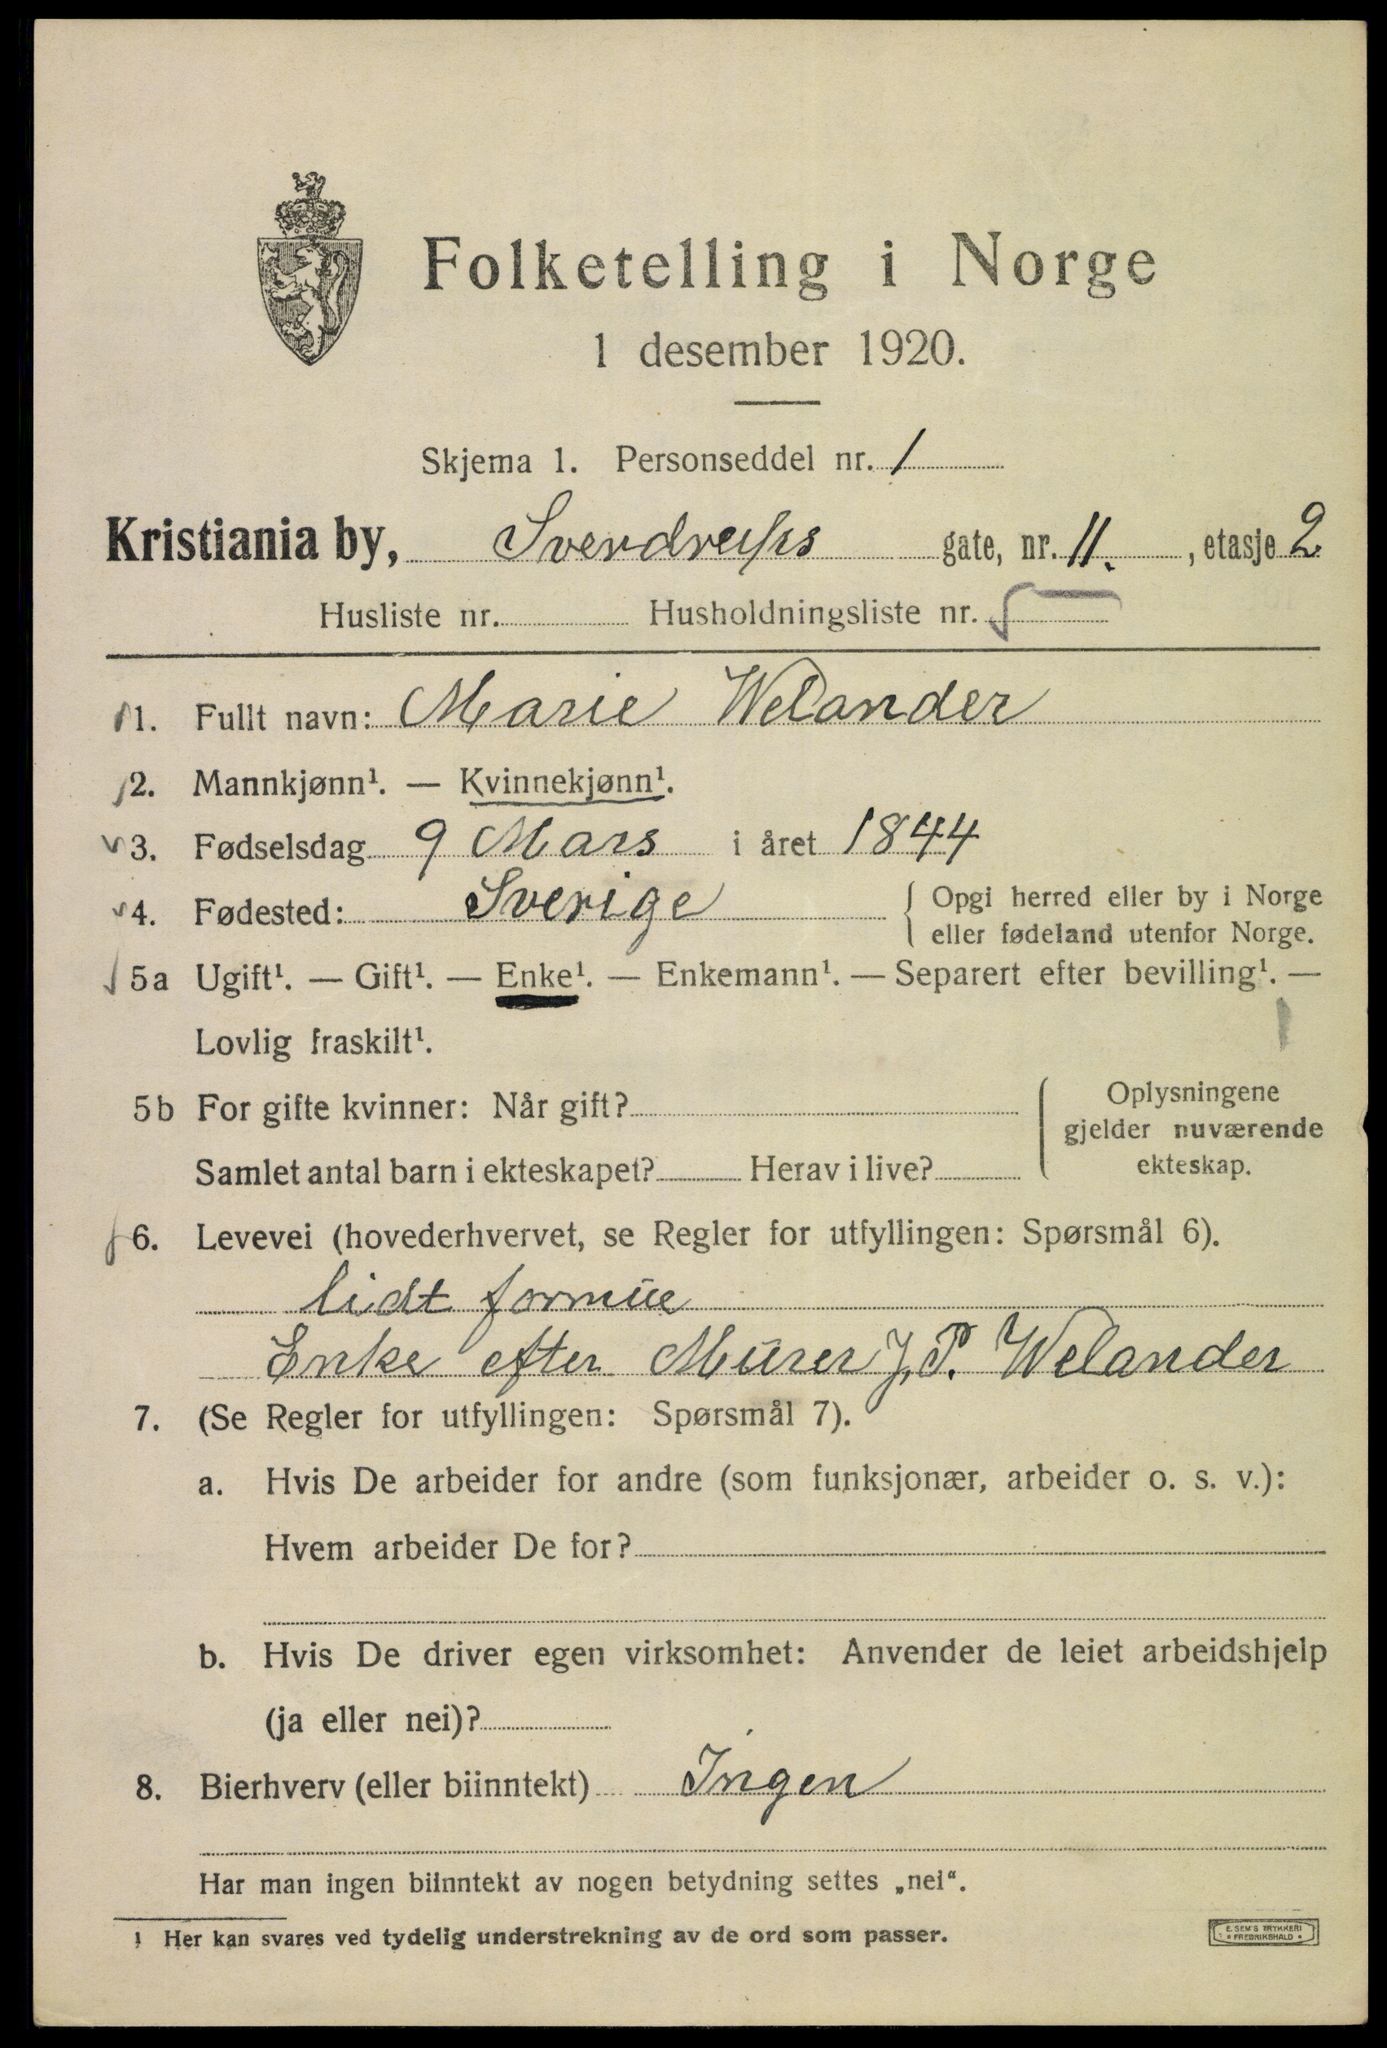 Folketelling i Norge
1 desember 1920.
Skjema 1. Personseddel nr. 1
Kristiania by, Sverdrups gate, nr. 11., etasje 2
Husliste nr. Husholdningsliste nr.
1. Fullt navn: Marie Welander
2. Mannkjønn¹. — Kvinnekjønn¹.
3. Fødselsdag 9 Mars i året 1844
4. Fødested: Sverige { Opgi herred eller by i Norge
eller fødeland utenfor Norge.
5a Ugift¹. — Gift¹. — Enke¹. — Enkemann¹. — Separert efter bevilling¹. —
Lovlig fraskilt¹.
5b For gifte kvinner: Når gift? { Oplysningene
gjelder nuværende
Samlet antal barn i ekteskapet? Herav i live? ekteskap.
6. Levevei (hovederhvervet, se Regler for utfyllingen: Spørsmål 6).
lidt formue
Enke efter Murer J. P. Welander
7. (Se Regler for utfyllingen: Spørsmål 7).
a. Hvis De arbeider for andre (som funksjonær, arbeider o. s. v.):
Hvem arbeider De for?
b. Hvis De driver egen virksomhet: Anvender de leiet arbeidshjelp
(ja eller nei)?
8. Bierhverv (eller biinntekt) Ingen
Har man ingen biinntekt av nogen betydning settes „nei“.
1 Her kan svares ved tydelig understrekning av de ord som passer.
E. SEM'S TRYKKERI
FREDRIKSHALD